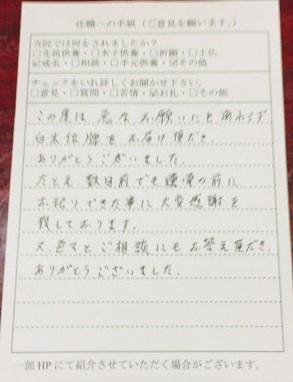 住職への手紙（ご意見を願います。）
当院では何をされましたか？
□先祖供養・□水子供養・□祈願・□土仏
☑戒名・□相談・□手元供養・☑その他
チェックをいれ詳しくお聞かせ下さい。
□意見・□質問・□苦情・☑お礼・□その他
この度は急なお願いにも拘わらず
白木位牌をお届け頂き
ありがとうございました。
たとえ数日前でも納骨の前に
お祀りできた事に大変感謝を
致しております。
又、色々とご相談にもお答え頂き
ありがとうございました。
一部HPにて紹介させていただく場合がございます。